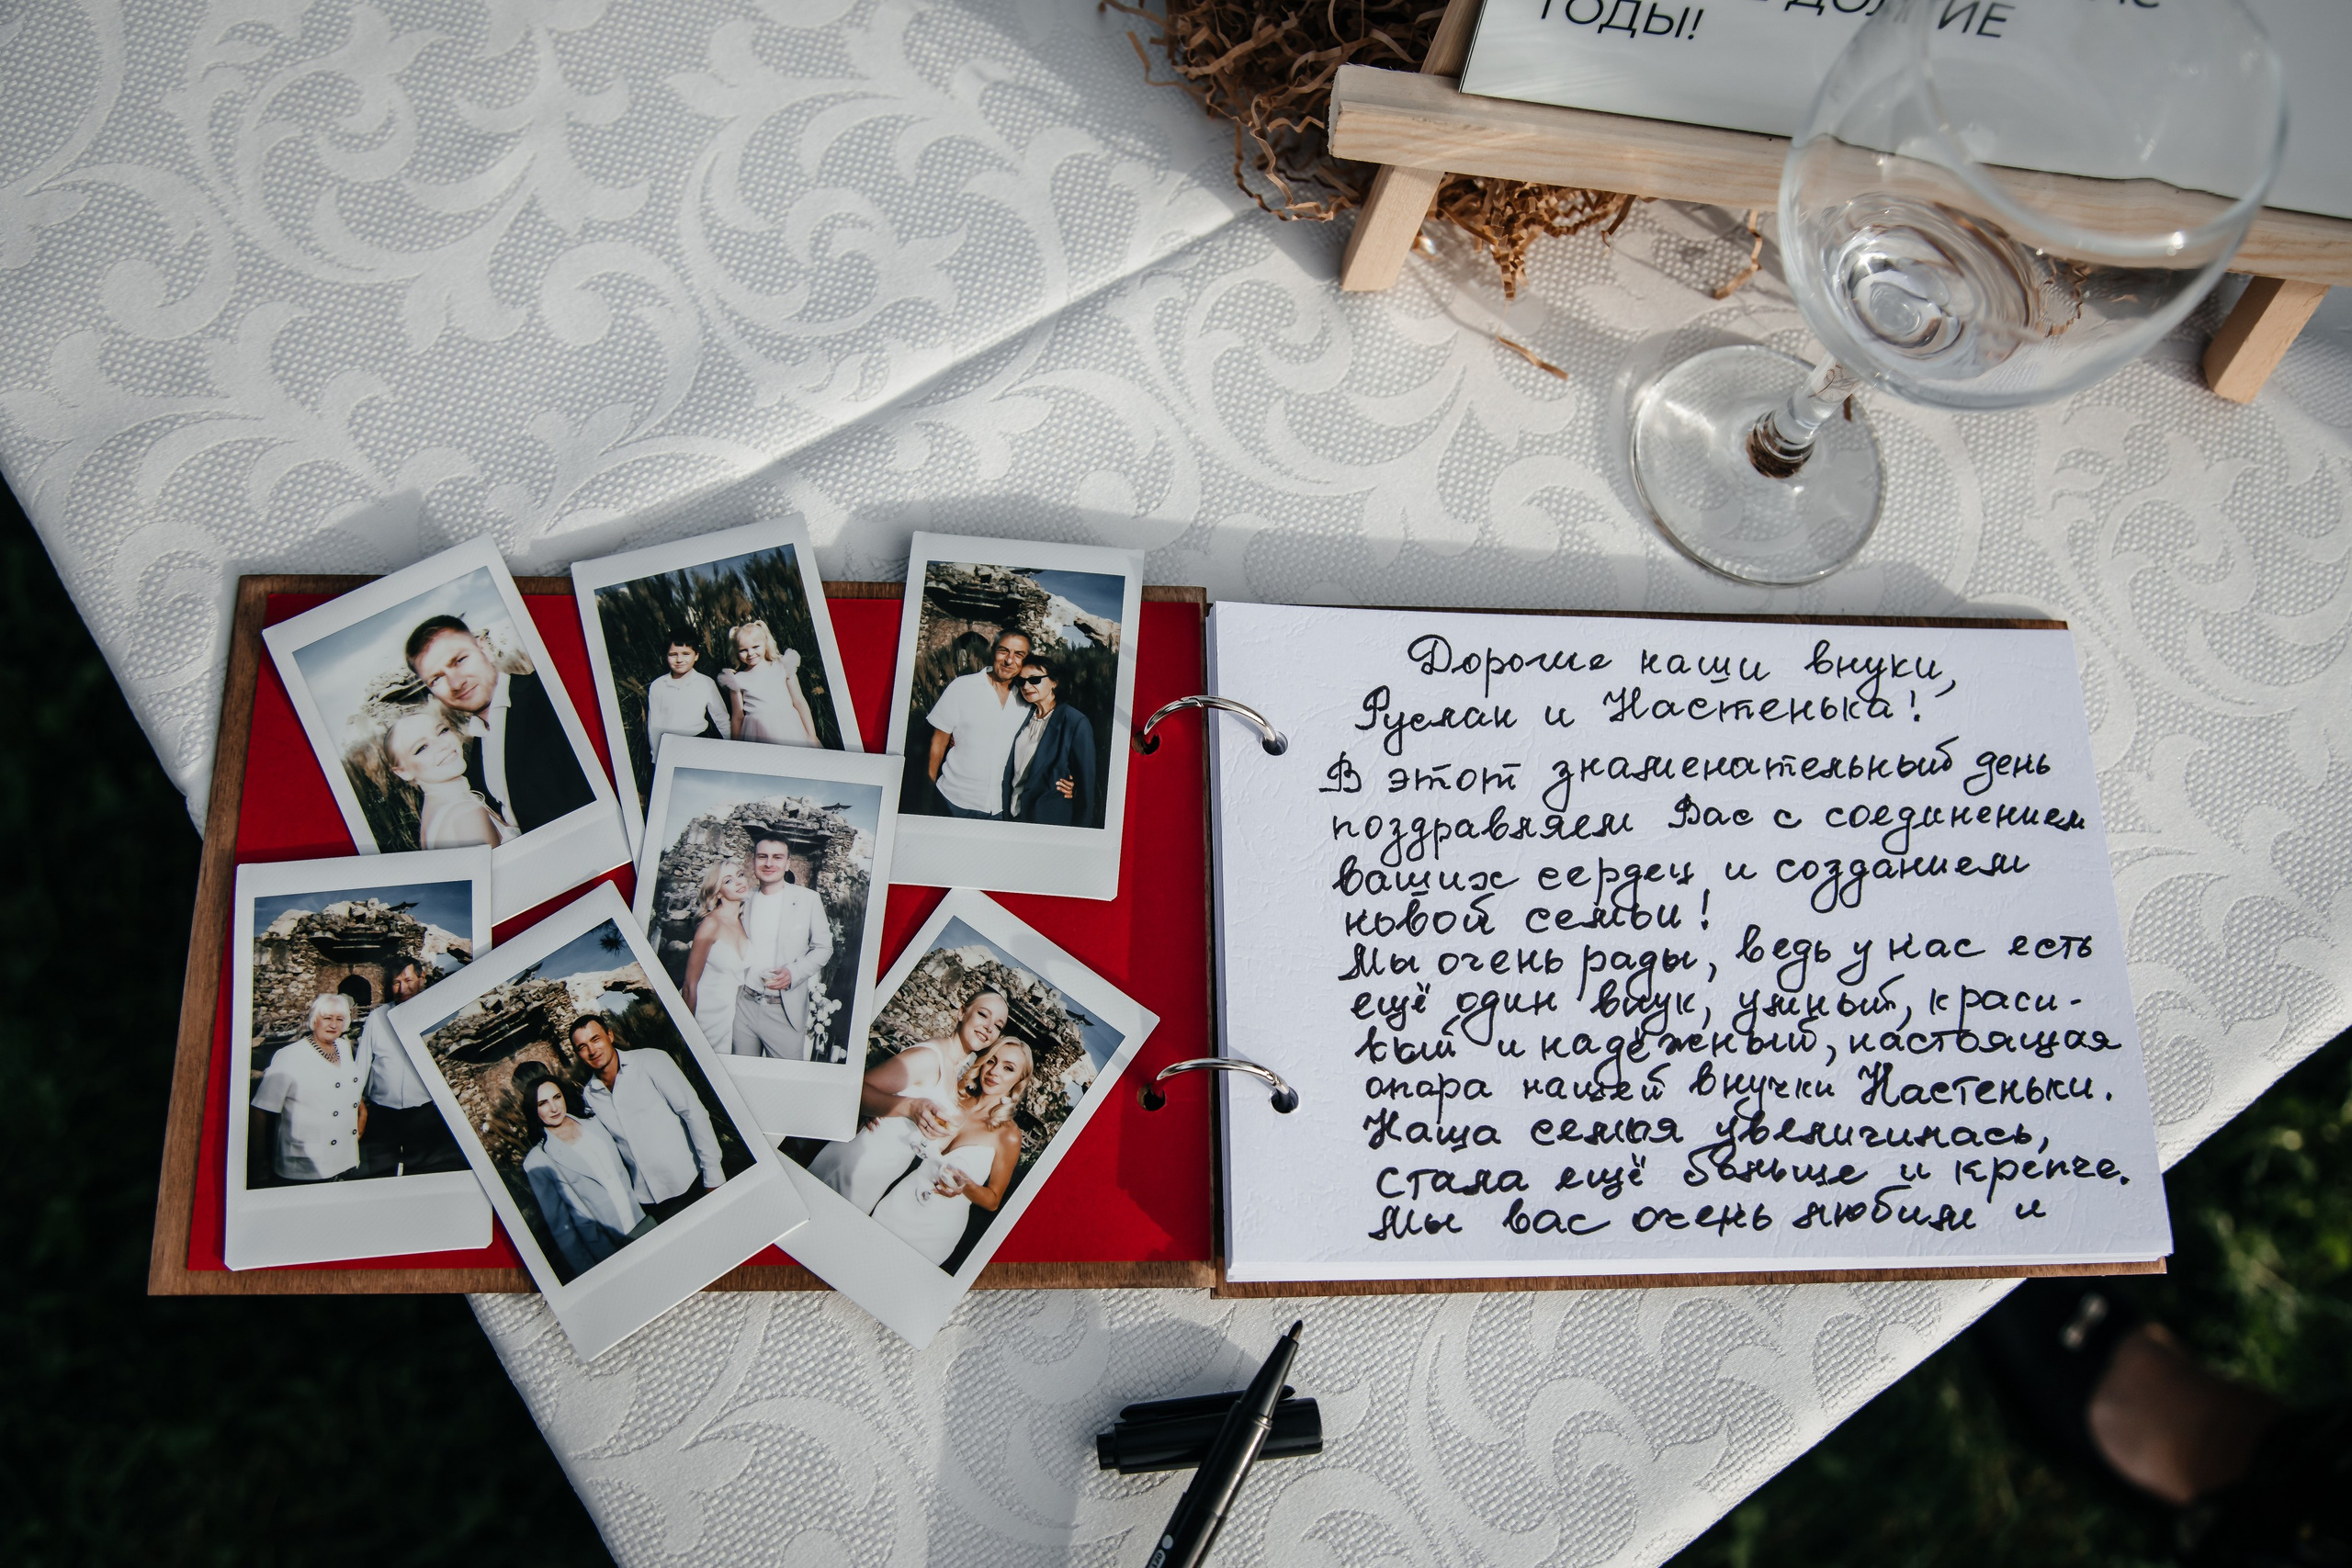 ГОДЫ!
Дорогие наши внуки,
Руслан и Настенька!
В этот знаменательный день
поздравляем Вас с соединением
ваших сердец и созданием
новой семьи!
Мы очень рады, ведь у нас есть
ещё один внук, умный, краси-
вый и надёжный, настоящая
опора нашей внучки Настеньки.
Наша семья увеличилась,
стала ещё больше и крепче.
Мы вас очень любим и